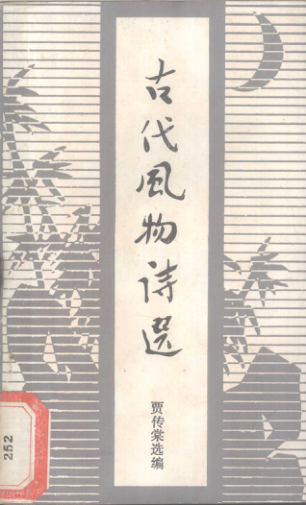 古代風物诗选
贾传棠选编
252